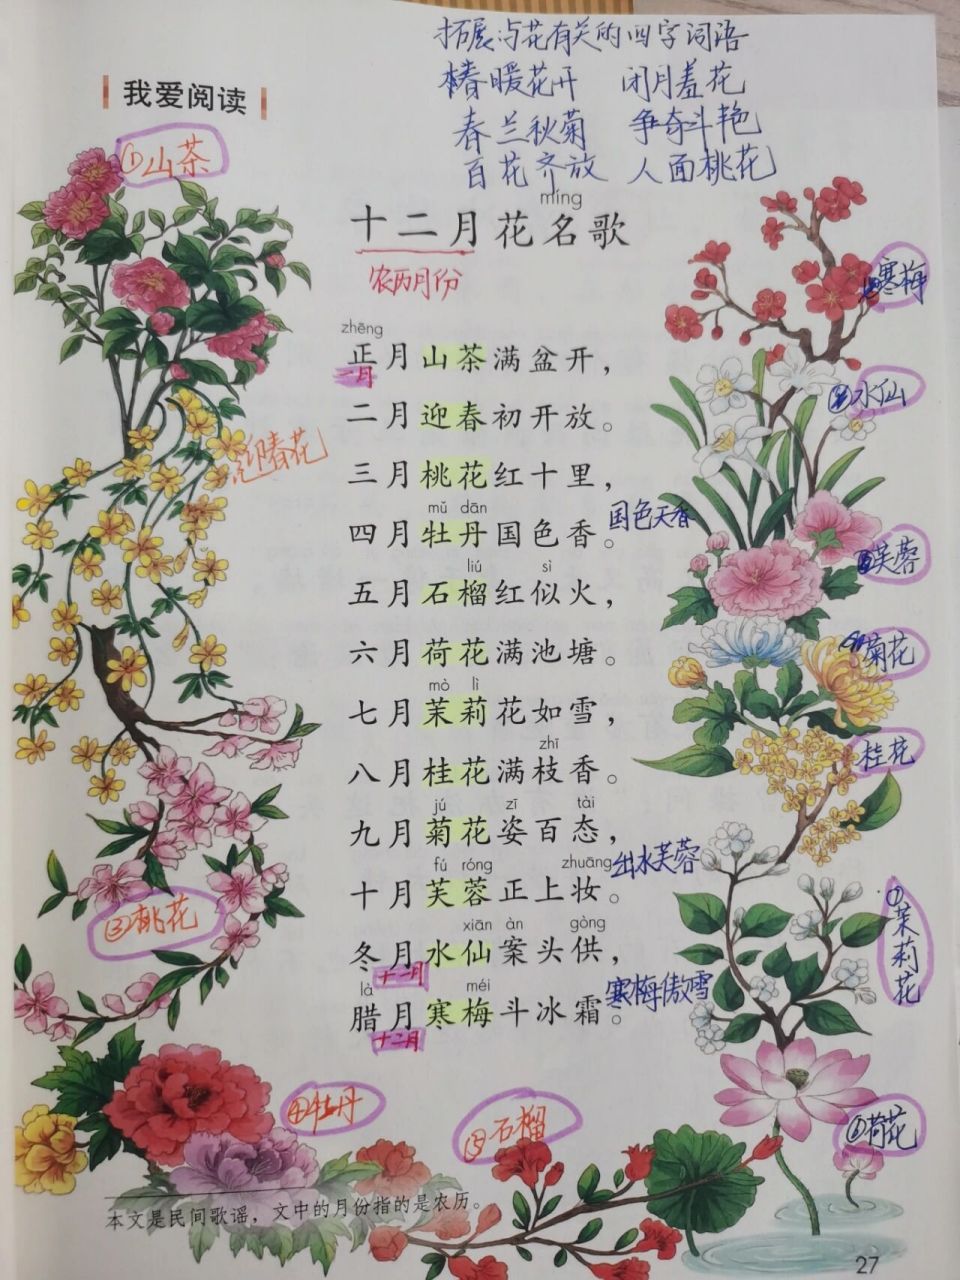 拓展与花有关的四字词语
春暖花开 闭月羞花
春兰秋菊 争奇斗艳
百花齐放 人面桃花
我爱阅读
①山茶
míng
十二月花名歌
农历月份
寒梅
zhēng
正月山茶满盆开，
一月
水仙
二月迎春初开放。
迎春花
三月桃花红十里，
mǔ dān
四月牡丹国色香。
国色天香
芙蓉
liú sì
五月石榴红似火，
六月荷花满池塘。
菊花
mò lì
七月茉莉花如雪，
桂花
zhī
八月桂花满枝香。
jú zī tài
九月菊花姿百态，
fú róng zhuāng
十月芙蓉正上妆。
出水芙蓉
③桃花
⑦茉莉花
xiān àn gòng
冬月水仙案头供，
十一月
là méi
腊月寒梅斗冰霜。
寒梅傲雪
十二月
④牡丹
⑤石榴
⑥荷花
本文是民间歌谣，文中的月份指的是农历。
27